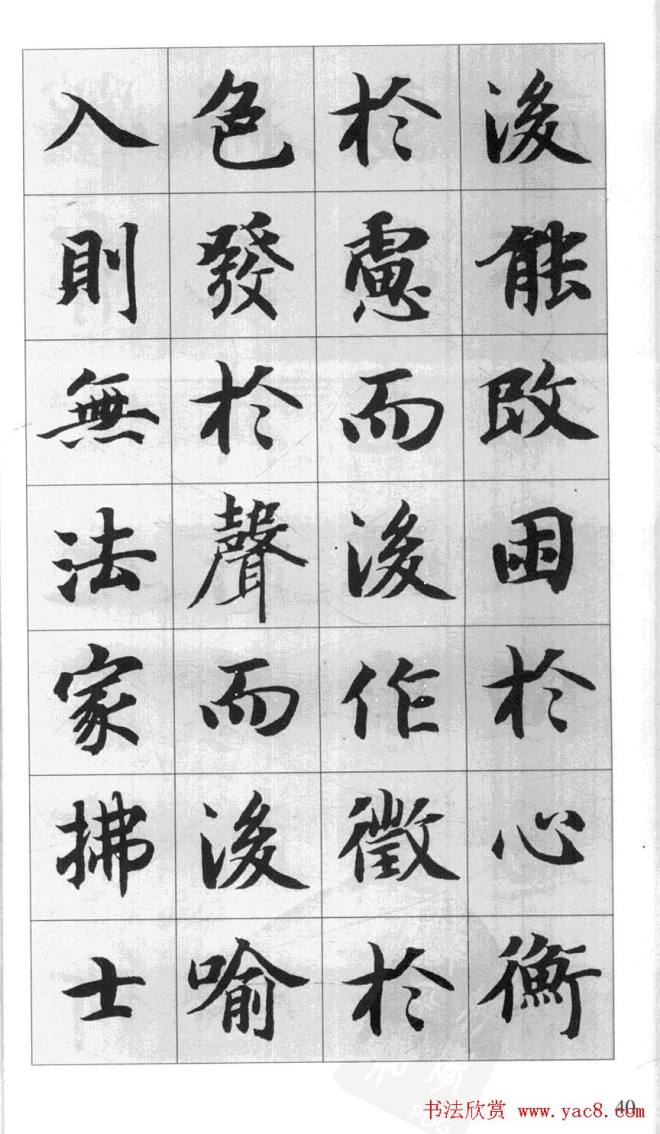 後能改困於心衡
於慮而後作徵於
色發於聲而後喻
入則無法家拂士
40
书法欣赏 www.yac8.com